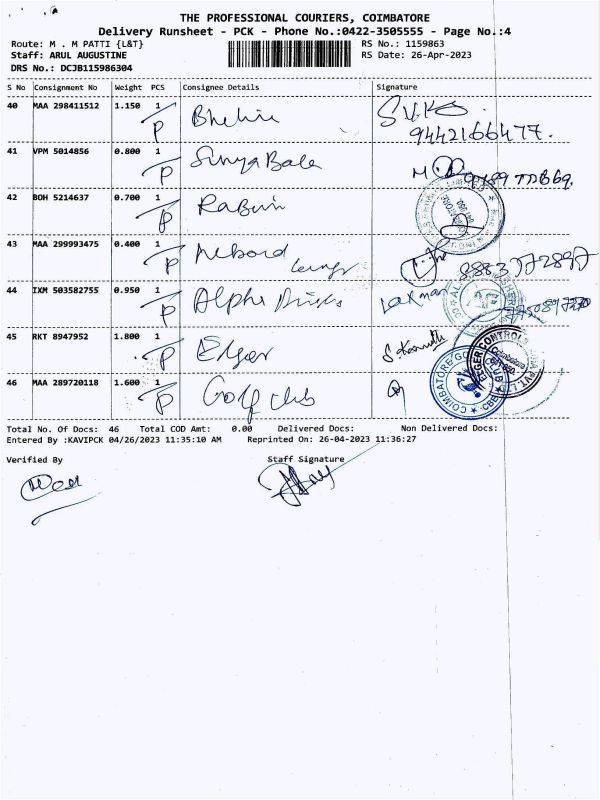 THE PROFESSIONAL COURIERS, COIMBATORE
Delivery Runsheet - PCK - Phone No.:0422-3505555 - Page No.:4
Route: M . M PATTI {L&T} RS No.: 1159863
Staff: ARUL AUGUSTINE RS Date: 26-Apr-2023
DRS No.: DCJB115986304
S No Consignment No Weight PCS Consignee Details Signature
40 MAA 298411512 1.150 1
P
9442166477.
41 VPM 5014856 0.800 1 Surya Bala
P
42 BOH 5214637 0.700 1 Rabwin
P
43 MAA 299993475 0.400 1
P
44 IXM 503582755 0.950 1 Alpha Laxman
P
45 RKT 8947952 1.800 1 Elger
P
46 MAA 289720118 1.600 1 Golf club
P
Total No. Of Docs: 46 Total COD Amt: 0.00 Delivered Docs: Non Delivered Docs:
Entered By :KAVIPCK 04/26/2023 11:35:10 AM Reprinted On: 26-04-2023 11:36:27
Verified By Staff Signature